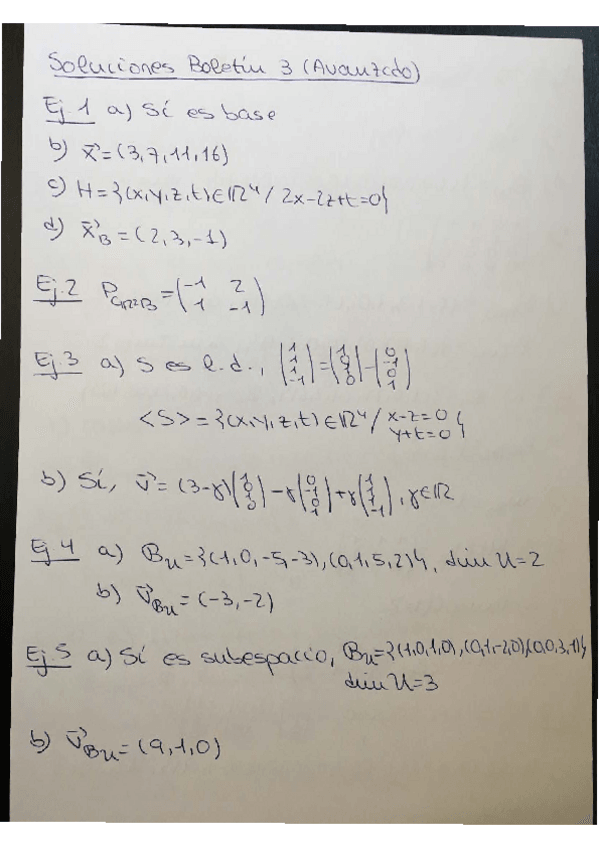 Soluciones Boletín 3 (Avanzado)
Ej 1 a) Sí es base
b) x⃗=(3,7,11,16)
c) H={(x,y,z,t)∈ℝ⁴/ 2x-2z+t=0}
d) x⃗_B=(2,3,-1)
Ej.2 P_{C₁→B}=(-1 2; 1 -1)
Ej 3 a) S es l.d., (1; 1; 1; -1)=(1; 0; 1; 0)-(0; -1; 0; 1)
<S>={(x,y,z,t)∈ℝ⁴/ x-z=0 y+t=0}
b) Sí, v⃗=(3-γ)(1; 0; 1; 0)-γ(0; -1; 0; 1)+γ(1; 1; 1; -1), γ∈ℝ
Ej 4 a) B_U={(1,0,-5,-3),(0,1,5,2)}, dim U=2
b) v⃗_{B_U}=(-3,-2)
Ej 5 a) Sí es subespacio, B_U={(1,0,1,0),(0,1,-2,0),(0,0,3,1)}
dim U=3
b) v⃗_{B_U}=(9,1,0)